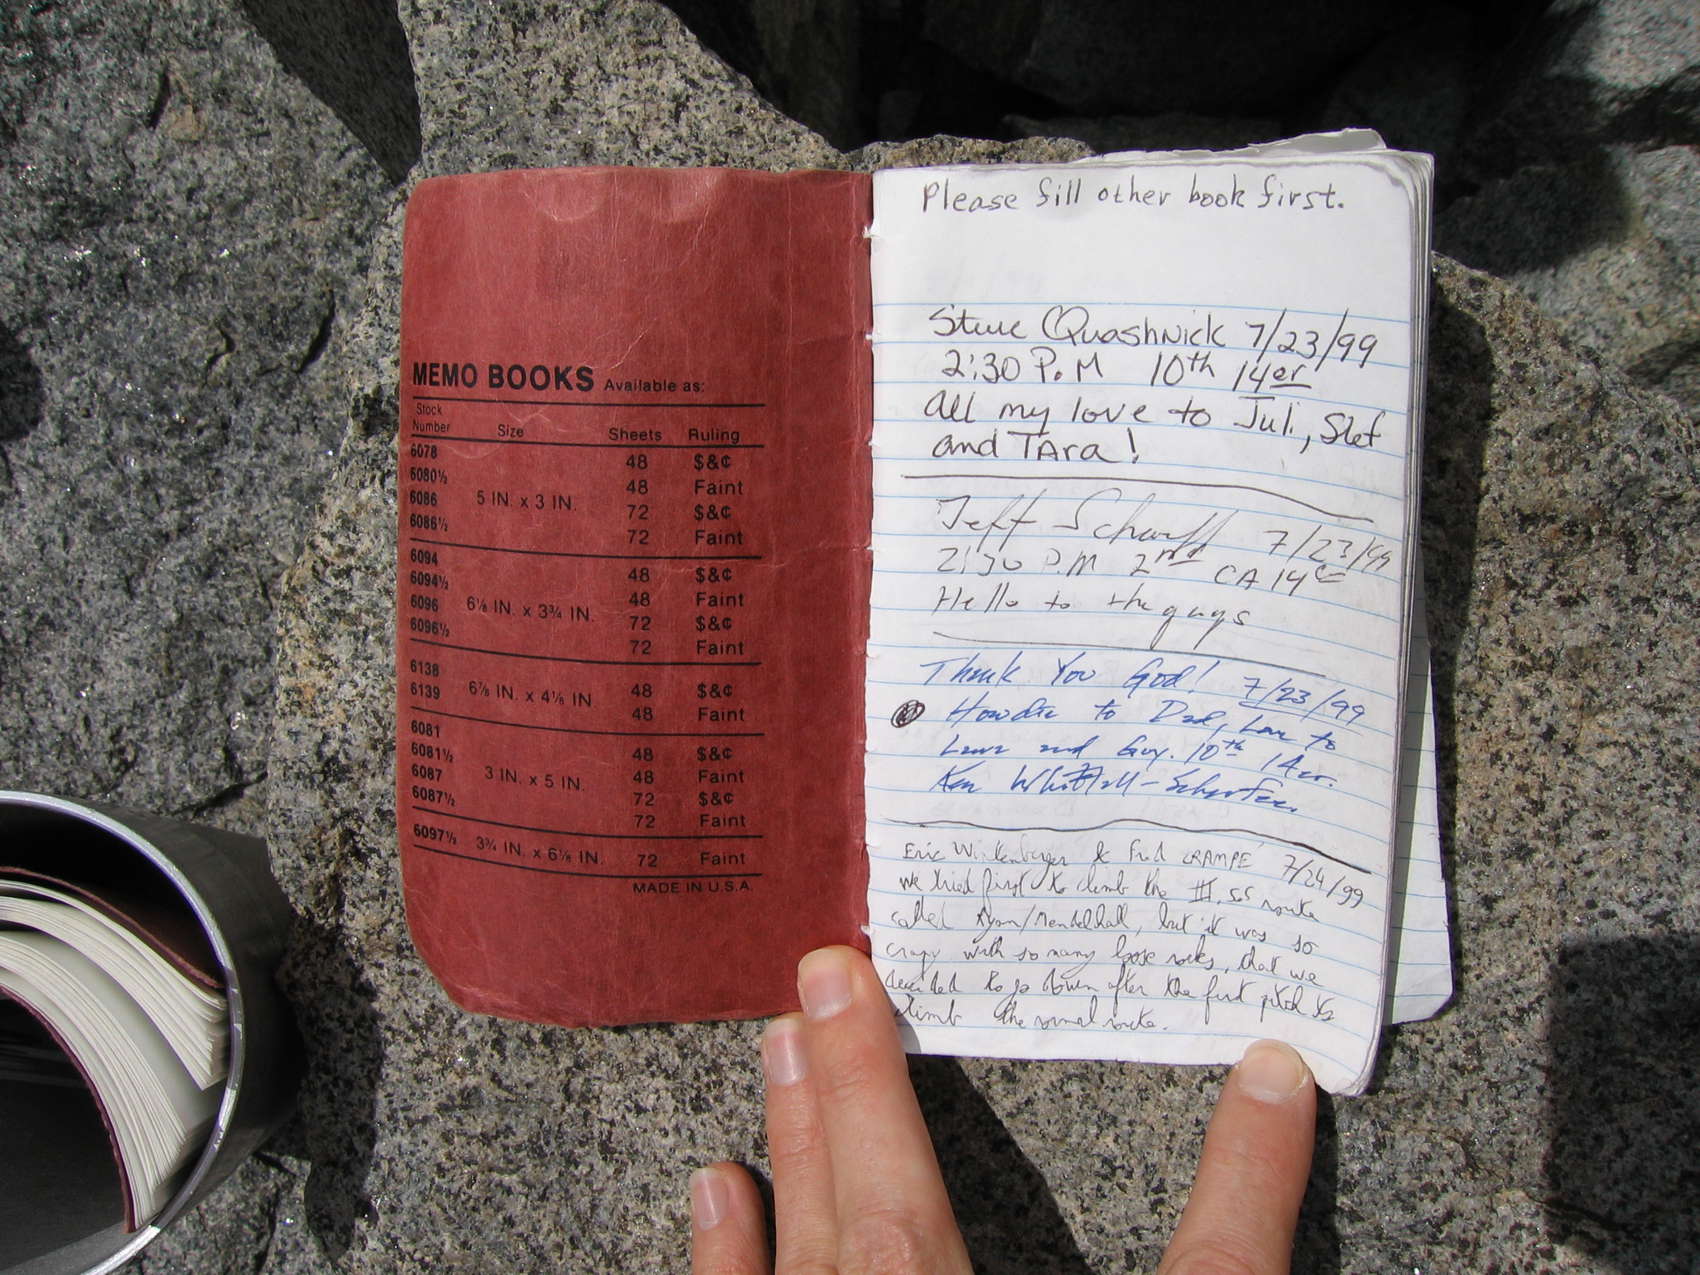 MEMO BOOKS Available as:
Stock Number Size Sheets Ruling
6078 48 $&¢
6080½ 48 Faint
6086 5 IN. x 3 IN. 72 $&¢
6086½ 72 Faint
6094 48 $&¢
6094½ 48 Faint
6096 6⅛ IN. x 3¾ IN. 72 $&¢
6096½ 72 Faint
6138 48 $&¢
6139 6⅞ IN. x 4⅛ IN 48 Faint
6081 48 $&¢
6081½ 48 Faint
6087 3 IN. x 5 IN. 72 $&¢
6087½ 72 Faint
6097½ 3¾ IN. x 6⅛ IN. 72 Faint
MADE IN U.S.A.
Please fill other book first.
Steve Quashnick 7/23/99
2:30 P.M 10th 14er
all my love to Juli, Stef
and TAra!
Jeff 7/23/99
2:30 P.M 2nd CA 14er
Hello to the guys
Thank You God! 7/23/99
Howdie to Dad, Love to
and Guy. 10th 14er.
Ken
Eric & Fred CRAMPE 7/24/99
we tried first to climb the III, route
called Ryan/Mendelhall, but it was so
crapy with so many loose rocks, that we
decided to go down after the first pitch to
climb the normal route.